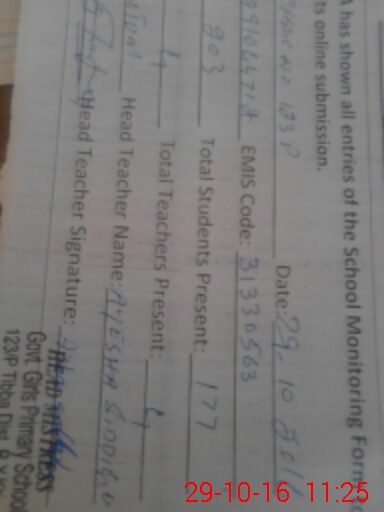 A has shown all entries of the School Monitoring Form
ts online submission.
123 P Date: 29-10-2016
EMIS Code: 31330563
203 Total Students Present: 177
4 Total Teachers Present: 4
Head Teacher Name: AYESHA SIDDIQA
Head Teacher Signature:
HEAD MISTRESS
Govt. Girls Primary School
123/P Tibba Dist. R.Y.K
29-10-16 11:25